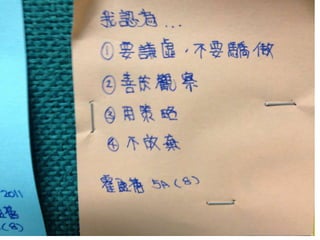 我認為...
①要謙虛,不要驕傲
②善於觀察
③用策略
④不放棄
5A(8)
2011
(8)